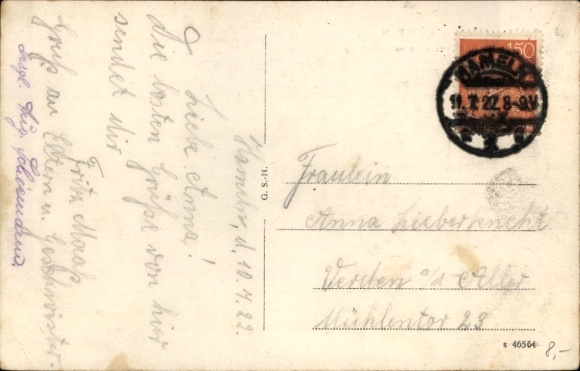 Hameln, d, 10.7.22.
Liebe Anna!
Die besten Grüße von hier
sendet dir
Fritz Maaß
Gruß an Eltern u. Geschwister.
G. S.-H.
150
HAMELN
11.7.22.8-9V.
Fräulein
Anna Lieberknecht
Verden a/d Aller
Mühlentor 23
S 46564
8,-